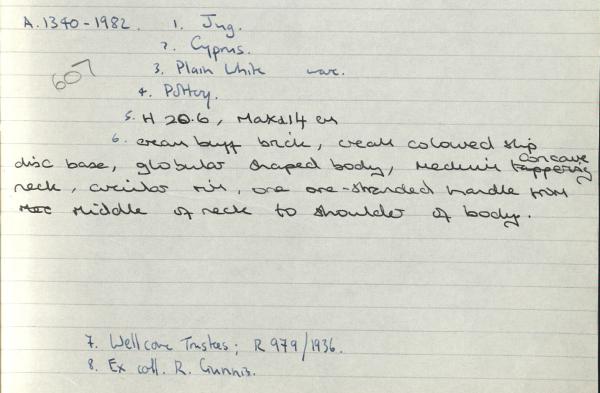 A.1340-1982. 1. Jug.
2. Cyprus.
607
3. Plain White ware.
4. Pottery.
5. H 20.6, Max d 14 cm
6. cream buff brick, cream coloured slip
disc base, globular shaped body, medium tappering concave
neck, circular rim, one one-stranded handle from
middle of neck to shoulder of body.
7. Wellcome Trustees; R 979/1936.
8. Ex coll. R. Gunnis.